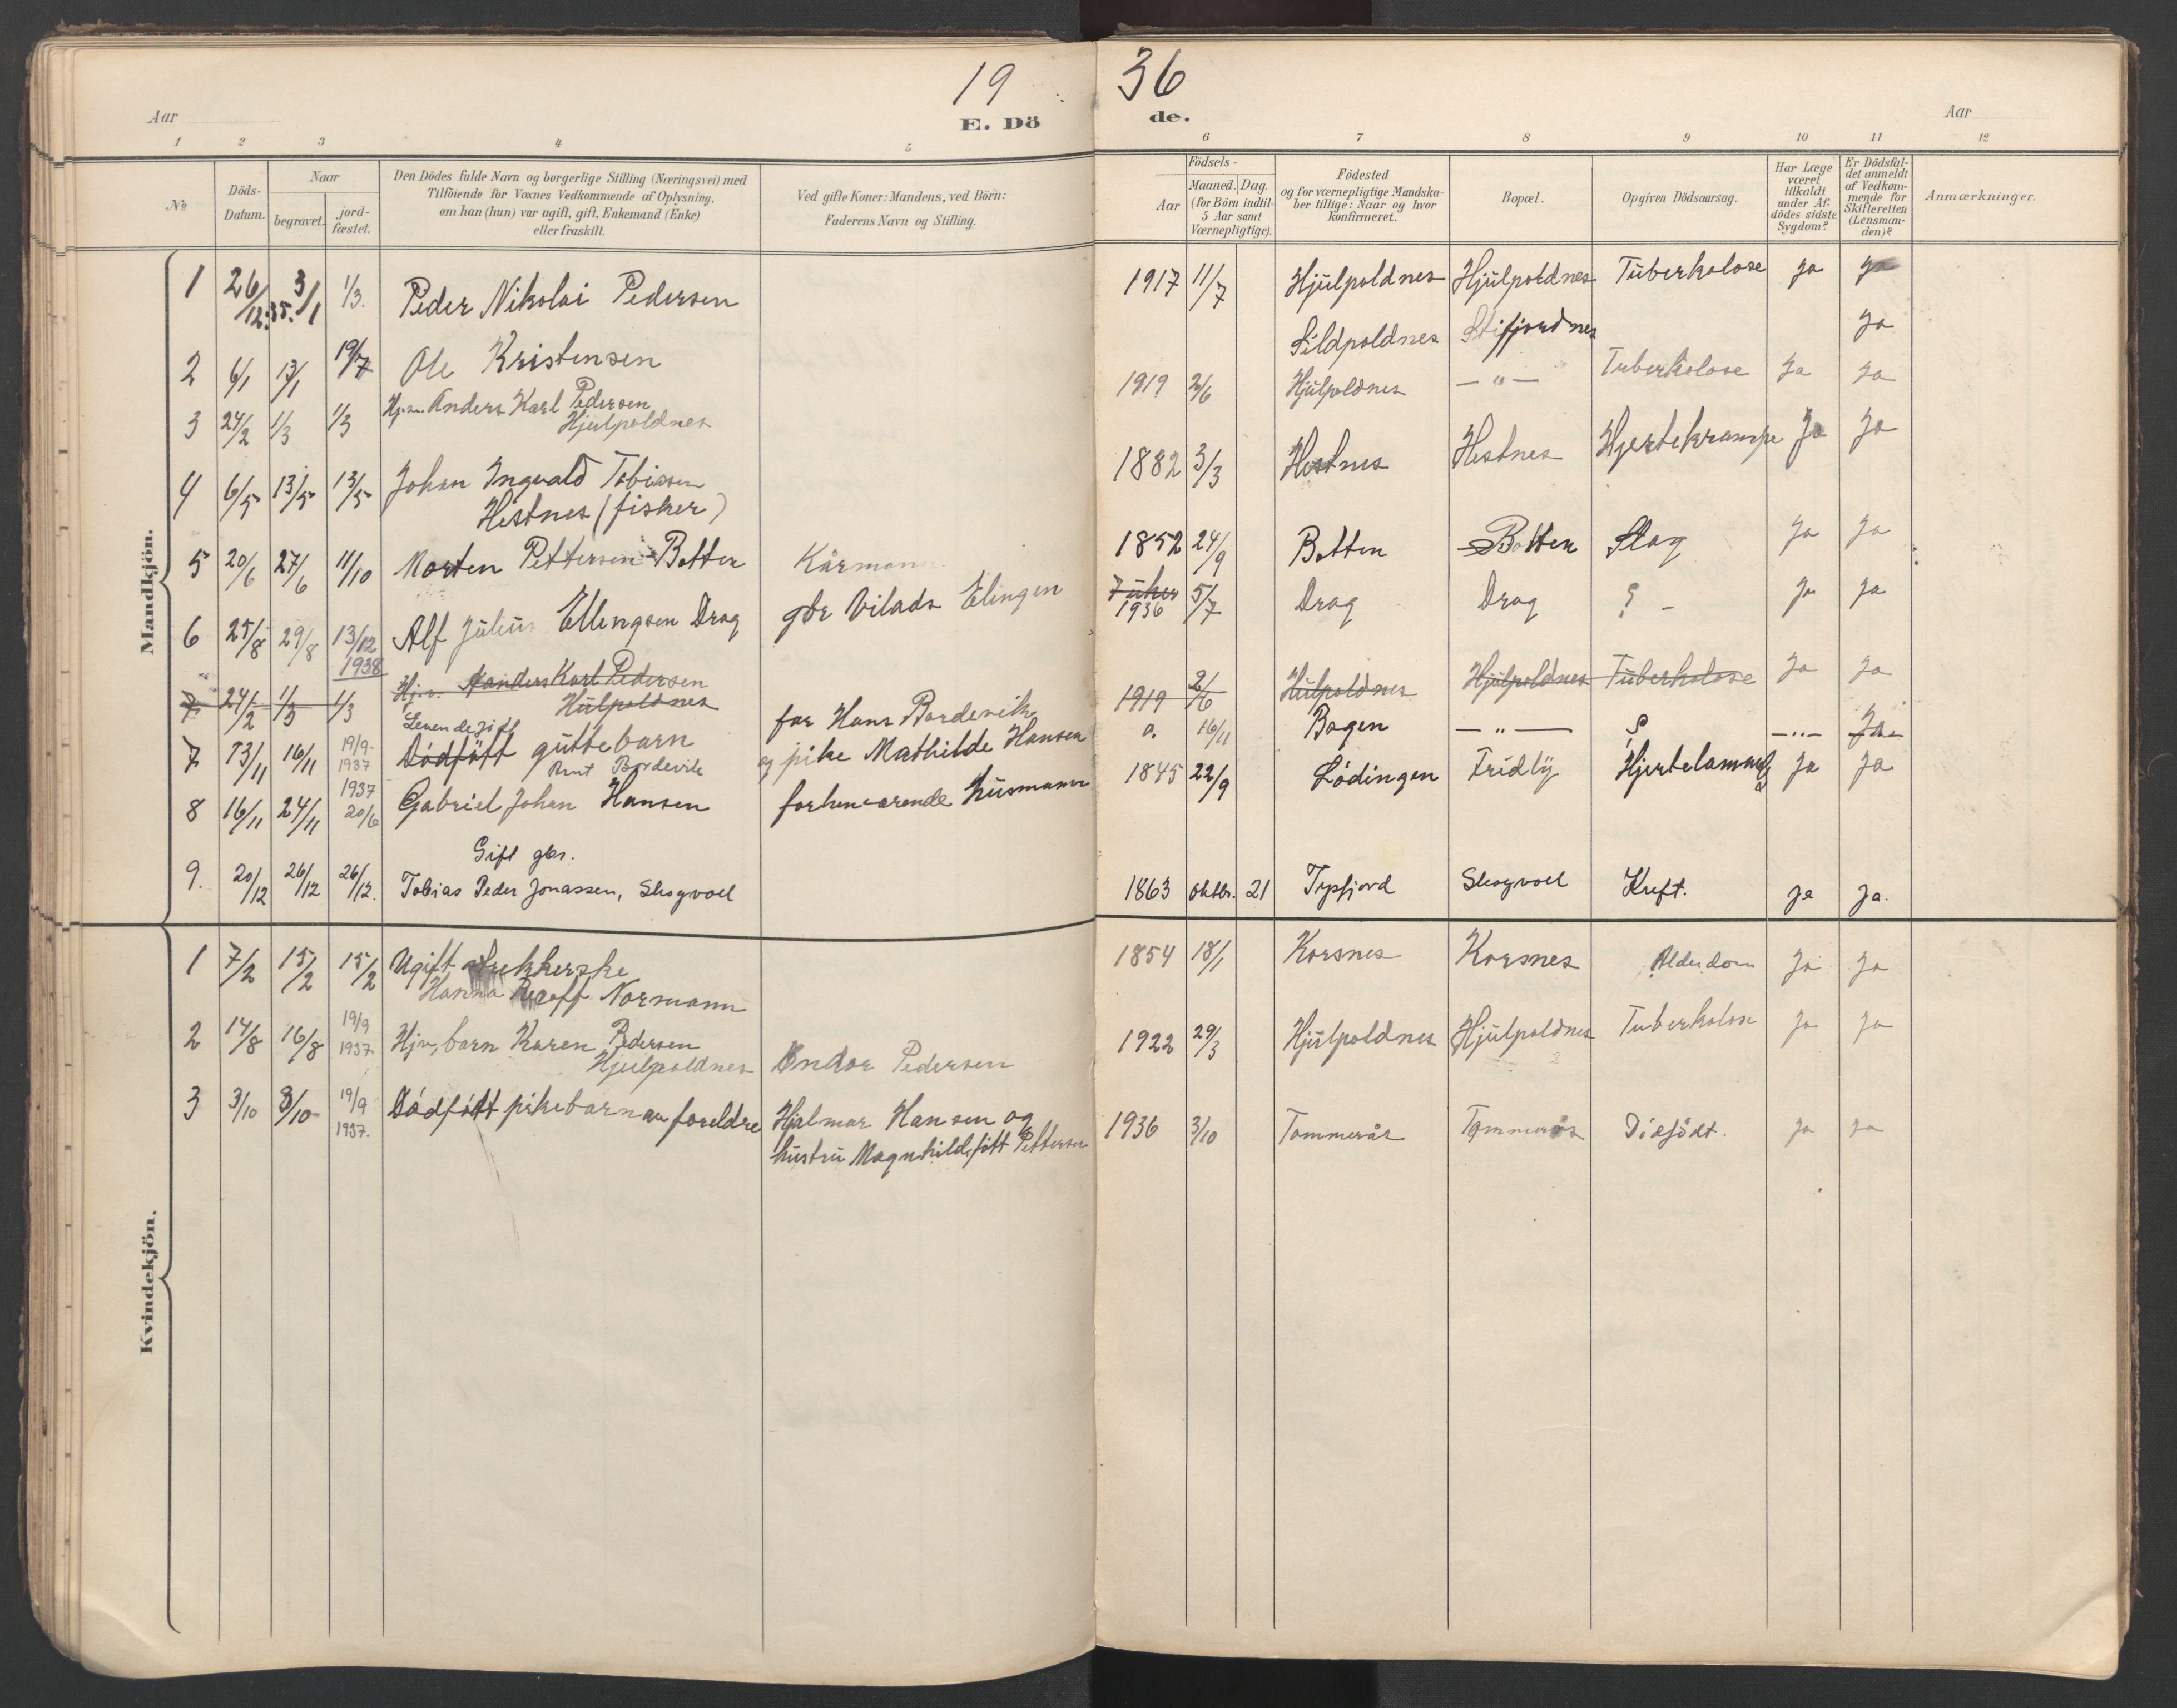 19 36
Aar
E. Dö de.
Aar
1 2 3 4 5 6 7 8 9 10 11 12
No
Döds-Datum.
Naar
begravet.
jord-fæstet.
Den Dödes fulde Navn og borgerlige Stilling (Næringsvei) med
Tilföiende for Voxnes Vedkommende af Oplysning,
om han (hun) var ugift, gift, Enkemand (Enke)
eller fraskilt.
Ved gifte Koner: Mandens, ved Börn:
Faderens Navn og Stilling.
Födsels-
Aar
Maaned. Dag.
(for Börn indtil
5 Aar samt
Værnepligtige).
Födested
og for værnepligtige Mandska-
ber tillige: Naar og hvor
Konfirmeret.
Bopæl.
Opgiven Dödsaarsag.
Har Læge
været
tilkaldt
under Af-
dödes sidste
Sygdom?
Er Dödsfal-
det anmeldt
af Vedkom-
mende for
Skifteretten
(Lensman-
den)?
Anmærkninger.
Mandkjön.
1 26/12.35. 3/1 1/3. Peder Nikolai Pedersen 1917 11/7 Hjulpoldnes Hjulpoldnes Tuberkolose Ja Ja
2 6/1 13/1 19/7 Ole Kristensen Sildpoldnes Stifjordnes Ja
3 24/2 1/3 1/3 Anders Karl Pedersen
Hjulpoldnes 1919 2/6 Hjulpoldnes — " — Tuberkolose Ja Ja
4 6/5 13/5 13/5 Johan Ingvald Tobiassen
Hestnes (fisker) 1882 3/3 Hestnes Hestnes Hjertekrampe Ja Ja
5 20/6 27/6 11/10 Morten Pettersen Botten Kårmann 1852 24/9 Botten Botten Slag Ja Ja
6 25/8 29/8 13/12 1938 Alf Julius Ellingsen Drag gbr Vilads Elingen 7 uker 1936 5/7 Drag Drag ? - Ja Ja
7. 24/2 1/3 1/3 Hjv. Anders Karl Pedersen
Hülpoldnes 1919 2/6 Hulpoldnes Hjulpoldnes Tuberkolose Ja Ja
Levendefött
7 13/11 16/11 19/9-1937 Dödfött guttebarn
Bordevik
for Hans Bordevik
og pike Mathilde Hansen 0. 16/11 Bogen — " — ? — " — Ja
8 16/11 24/11 1937 20/6 Gabriel Johan Hansen forhenværende Husmann 1845 22/9 Lödingen Fridly Ja Ja
Gift gbr.
9. 20/12 26/12 26/12. Tobias Peder Jonassen, Skogvoll 1863 Oktbr. 21 Tysfjord Skogvoll Kreft. Ja Ja.
Kvindekjön.
1 7/2 15/2 15/2 Ugift
Hanna Normann 1854 18/1 Korsnes Korsnes Alderdom Ja Ja
2 14/8 16/8 19/9 1937 Hjv, barn Karen Pedersen
Hjulpoldnes Andor Pedersen 1922 29/3 Hjulpoldnes Hjulpoldnes Tuberkolose Ja Ja
3 3/10 8/10 19/9 1937. Dödfött pikebarn av foreldre Hjalmar Hansen og
hustru Magnhild, fött Pettersen 1936 3/10 Tommerås Tommerås Dödfödt. Ja Ja